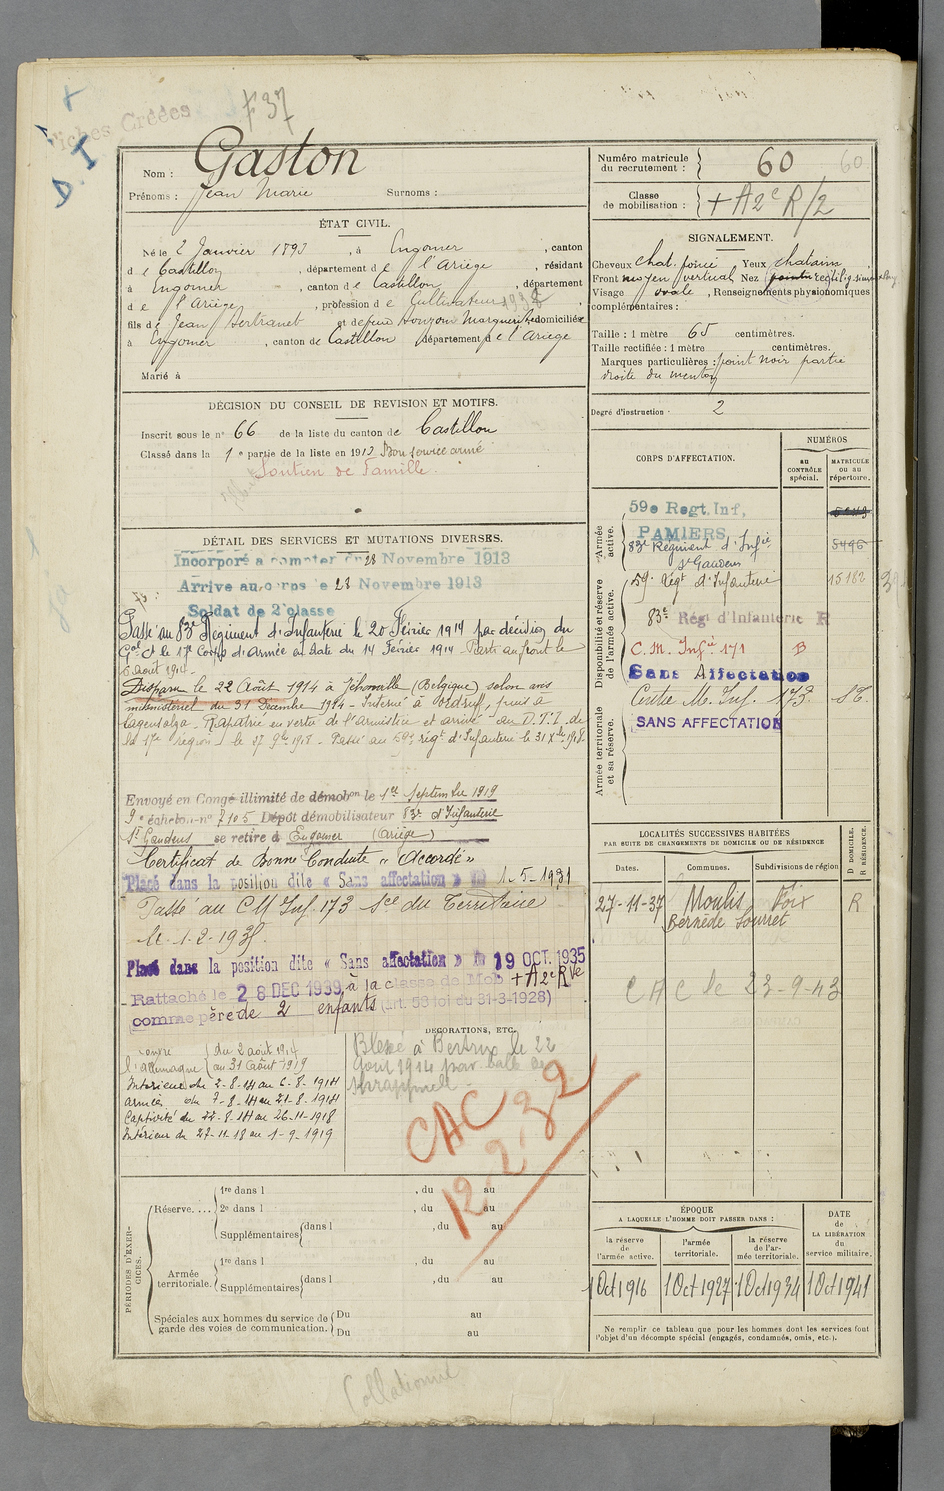 Fiches Créées
F 37
D. I
Nom : Gaston
Prénoms : Jean Marie Surnoms :
ÉTAT CIVIL.
Né le 2 Janvier 1893, à Engomer, canton
d e Castillon, département d e l'Ariège, résidant
à Engomer, canton d e Castillon, département
d e l'Ariège, profession d e Cultivateur
fils d e Jean Bertranet et de feue Souzou Marguerite domiciliés
à Engomer, canton de Castillon département d e l'Ariège
Marié à
DÉCISION DU CONSEIL DE REVISION ET MOTIFS.
Inscrit sous le n° 66 de la liste du canton de Castillon
Classé dans la 1e partie de la liste en 1913 Bon service armé
Soutien de Famille.
DÉTAIL DES SERVICES ET MUTATIONS DIVERSES.
Incorporé à compter du 28 Novembre 1913
Arrivé au corps le 28 Novembre 1913
Soldat de 2e classe
Passé au 83e Régiment d'Infanterie le 20 Février 1914 par décision du
Gal Ct le 17e Corps d'Armée en date du 14 Février 1914 - Parti au front le
6 août 1914 -
Disparu le 22 Août 1914 à Jéhonville (Belgique) selon avis
ministériel du 31 Décembre 1914 - Interné à Ordruf, puis à
Lagensalza. Rapatrié en vertu de l'armistice et arrivé au D.T.I. de
la 17e région le 27 9bre 1918 - Passé au 59e régt d'Infanterie le 31 Xbre 1918
Envoyé en Congé illimité de démobon le 1er Septembre 1919
9e échelon n° 7105 Dépôt démobilisateur 83e d'Infanterie
St Gaudens se retire à Engomer (Ariège)
Certificat de Bonne Conduite "Accordé"
Placé dans la position dite « Sans affectation » du 1-5-1931
Passé au CM Inf. 173 Sce du Territoire
le 1.2.193
Placé dans la position dite « Sans affectation » du 19 OCT. 1935
Rattaché le 28 DEC 1939, à la classe de Mob + A 2e Rve
comme père de 2 enfants (art. 58 loi du 31-3-1928)
DÉCORATIONS, ETC.
contre l'Allemagne { du 2 août 1914
au 31 Août 1919
Intérieur du 2-8-14 au 6-8-1914
Armées du 7-8-14 au 21-8-1914
Captivité du 22-8-14 au 26-11-1918
Intérieur du 27-11-18 au 1-9-1919
Blessé à Bertrix le 22
Août 1914 par balle de
shrappnell -
CAC
12.2.32
PÉRIODES D'EXERCICES.
Réserve.... { 1re dans l , du au
2e dans l , du au
Supplémentaires { dans l , du au
Armée territoriale. { 1re dans l , du au
Supplémentaires { dans l , du au
Spéciales aux hommes du service de garde des voies de communication. { Du au
Du au
Numéro matricule du recrutement : } 60 60
Classe de mobilisation : } + A 2e R/2
SIGNALEMENT.
Cheveux chat. foncé Yeux chatains
Front moyen vertical Nez pointu rectilig. sinueux
Visage ovale, Renseignements physionomiques
complémentaires :
Taille : 1 mètre 65 centimètres.
Taille rectifiée : 1 mètre centimètres.
Marques particulières : point noir partie
droite du menton
Degré d'instruction - 2
CORPS D'AFFECTATION.
NUMÉROS
au CONTRÔLE spécial.
MATRICULE ou au répertoire.
Armée active.
59e Regt. Inf,
PAMIERS
83e Régiment d'Infie 5496
St Gaudens
Disponibilité et réserve de l'armée active.
59e Régt d'Infanterie 15182
83e Régt d'Infanterie R
C. M. Infie 171 B
Sans Affectation
Centre M. Inf. 173 ST.
Armée territoriale et sa réserve.
SANS AFFECTATION
LOCALITÉS SUCCESSIVES HABITÉES
PAR SUITE DE CHANGEMENTS DE DOMICILE OU DE RÉSIDENCE
D DOMICILE. R RÉSIDENCE.
Dates. Communes. Subdivisions de région
27-11-37 Moulis Foix R
Bernède Lourret
CAC le 23-9-43
ÉPOQUE
A LAQUELLE L'HOMME DOIT PASSER DANS :
DATE de LA LIBÉRATION du service militaire.
la réserve de l'armée active.
l'armée territoriale.
la réserve de l'armée territoriale.
1 Oct 1916 1 Oct 1927 1 Oct 1934 1 Oct 1941
Ne remplir ce tableau que pour les hommes dont les services font
l'objet d'un décompte spécial (engagés, condamnés, omis, etc.).
Collationné